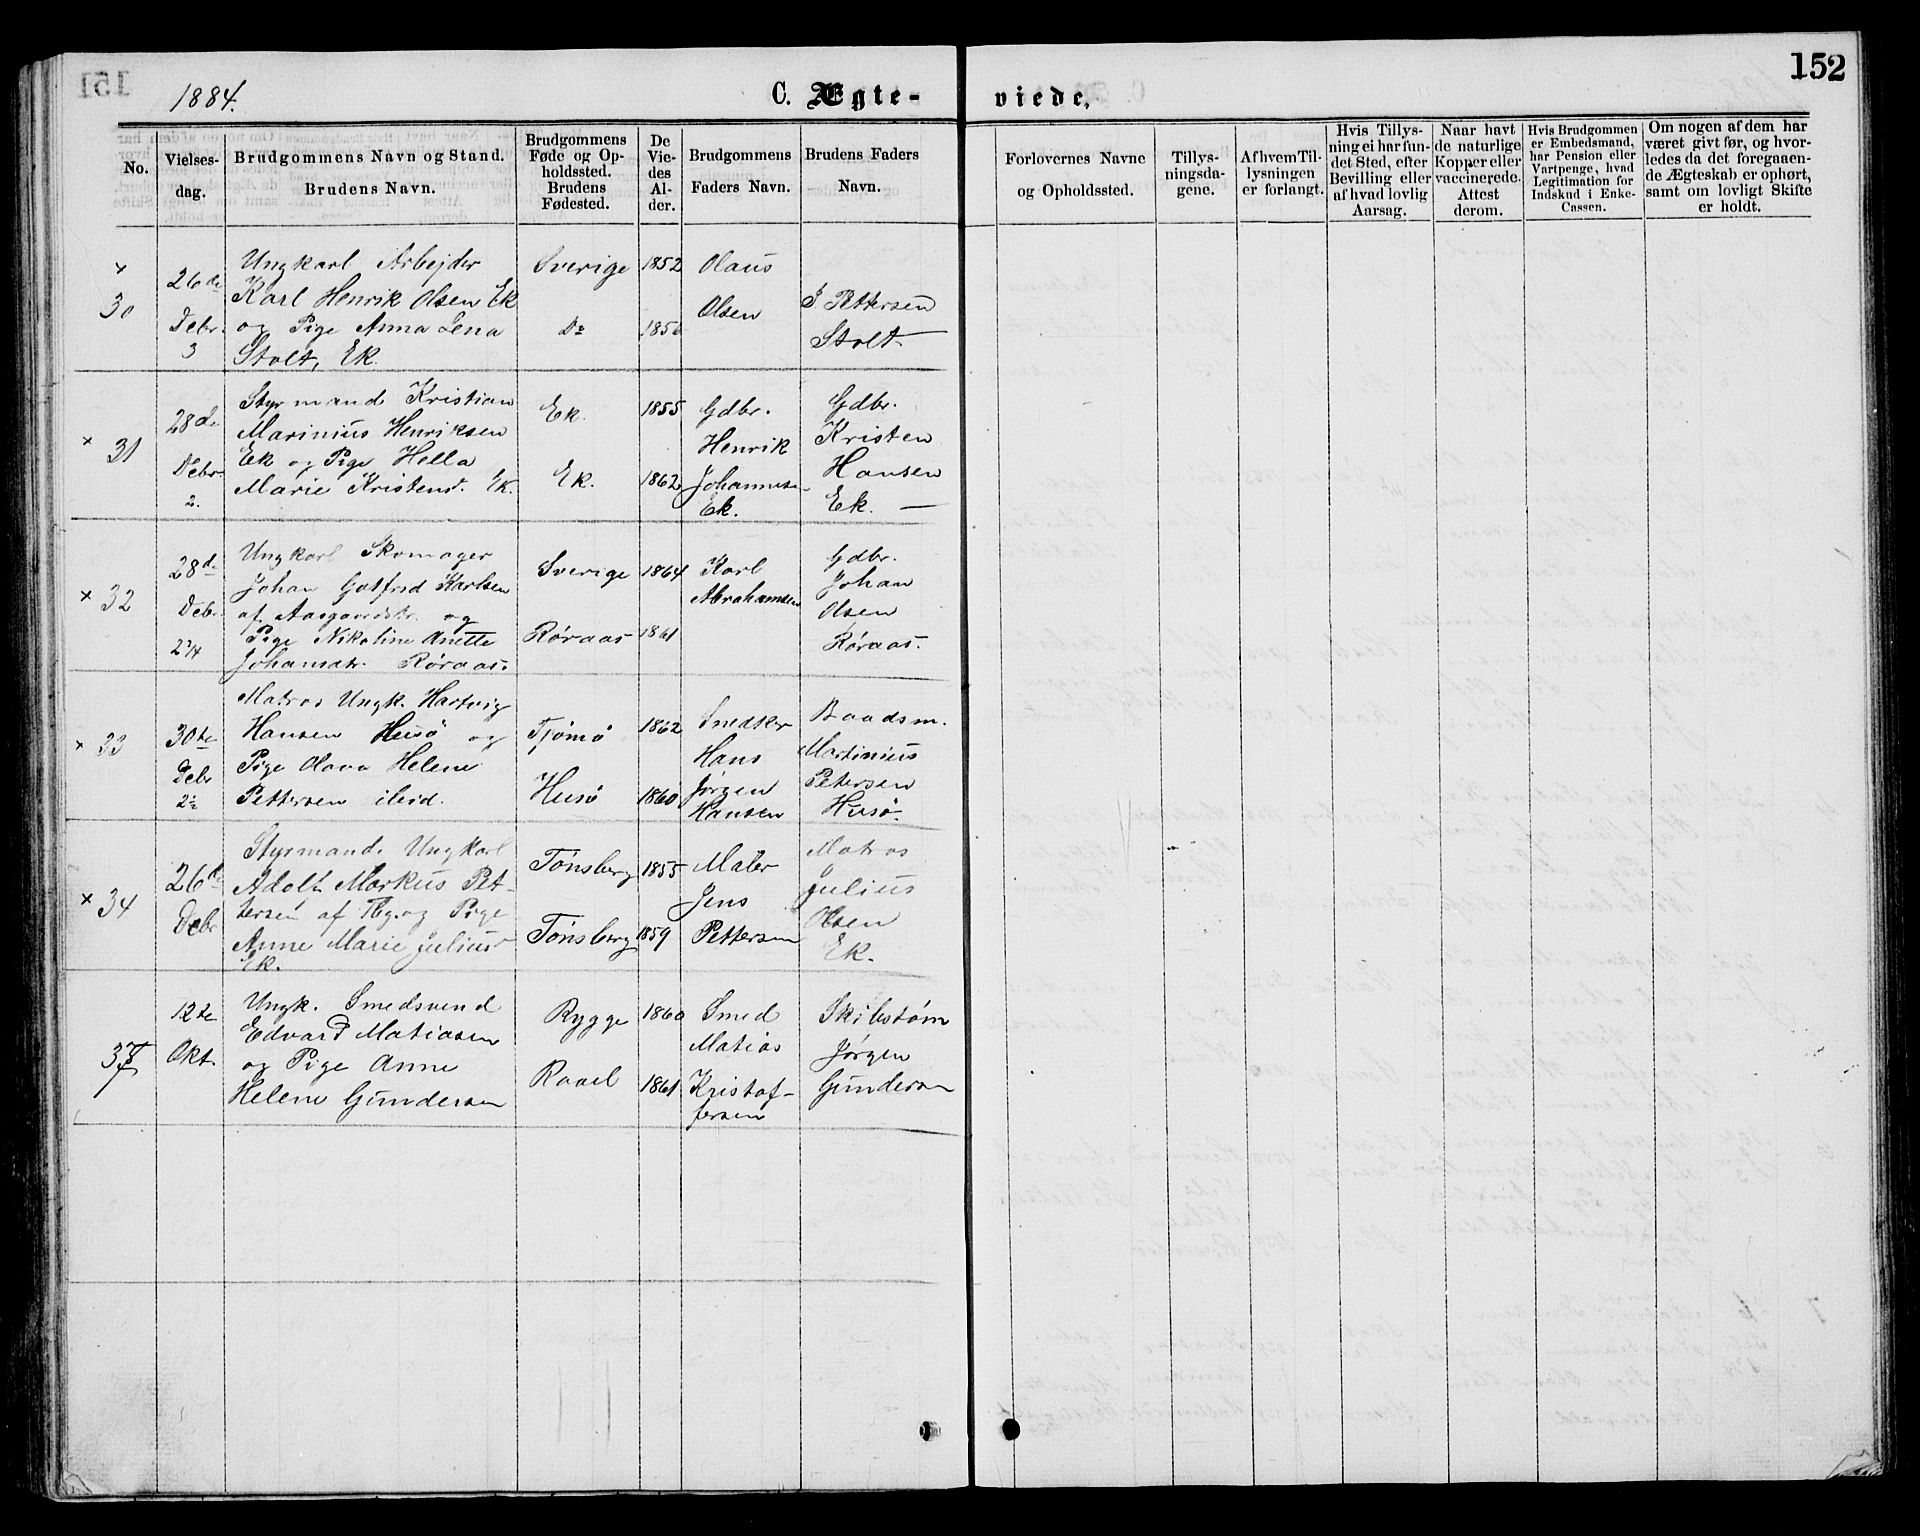 152
1884.
C. Ægte-
viede,
No.
Vielses-
dag.
Brudgommens Navn og Stand.
Brudens Navn.
Brudgommens
Føde og Op-
holdssted.
Brudens
Fødested.
De
Vie-
des
Al-
der.
Brudgommens
Faders Navn.
Brudens Faders
Navn.
Forlovernes Navne
og Opholdssted.
Tillys-
ningsda-
gene.
Af hvem Til-
lysningen
er forlangt.
Hvis Tillys-
ning ei har fun-
det Sted, efter
Bevilling eller
af hvad lovlig
Aarsag.
Naar havt
de naturlige
Kopper eller
vaccinerede.
Attest
derom.
Hvis Brudgommen
er Embedsmand,
har Pension eller
Vartpenge, hvad
Legitimation for
Indskud i Enke-
Cassen.
Om nogen af dem har
været givt før, og hvor-
ledes da det foregaaen-
de Ægteskab er ophørt,
samt om lovligt Skifte
er holdt.
× 30
26de
Debr.
3
Ungkarl Arbejder
Karl Henrik Olsen Ek
og Pige Anna Lena
Stolt, Ek.
Sverige
Do
1852
Olaus
Olsen
Pettersen
Stolt
× 31
28de
Debr.
2.
Styrmand Kristian
Marinius Henriksen
Ek og Pige Hella
Marie Kristensd. Ek.
Ek.
Ek.
1855
1862
Gdbr.
Henrik
Johannesen
Ek.
Gdbr.
Kristen
Hansen
Ek. —
× 32
28de
Debr
Ungkarl Skomager
Johan Gotfred Karlsen
af Aasgaardstr. og
Pige Nikoline Anette
Johansdtr. Røraas.
Sverige
Røraas
1864
1861
Karl
Abrahamsen
Gdbr.
Johan
Olsen
Røraas.
× 33
30te
Debr
Matros Ungk. Hartvig
Hansen Husø og
Pige Olava Helene
Pettersen ibid.
Tjømø
Husø
1862
1860
Snedker
Hans
Jørgen
Hansen
Baadsm.
Martinius
Petersen
Husø.
× 34
26de
Debr
Styrmand Ungkarl
Adolf Markus Pet-
tersen af Tbg. og Pige
Anne Marie Julius
Ek.
Tønsberg
Tønsberg
1855
1859
Maler
Jens
Pettersen
Matros
Julius
Olsen
Ek.
12te
Okt.
Ungk. Smedsvend
Edvard Matiasen
og Pige Anne
Helene Gundersen
Rygge
Raael
1860
1861
Smed
Matias
Kristof-
fersen
Skibstøm
Jørgen
Gundersen